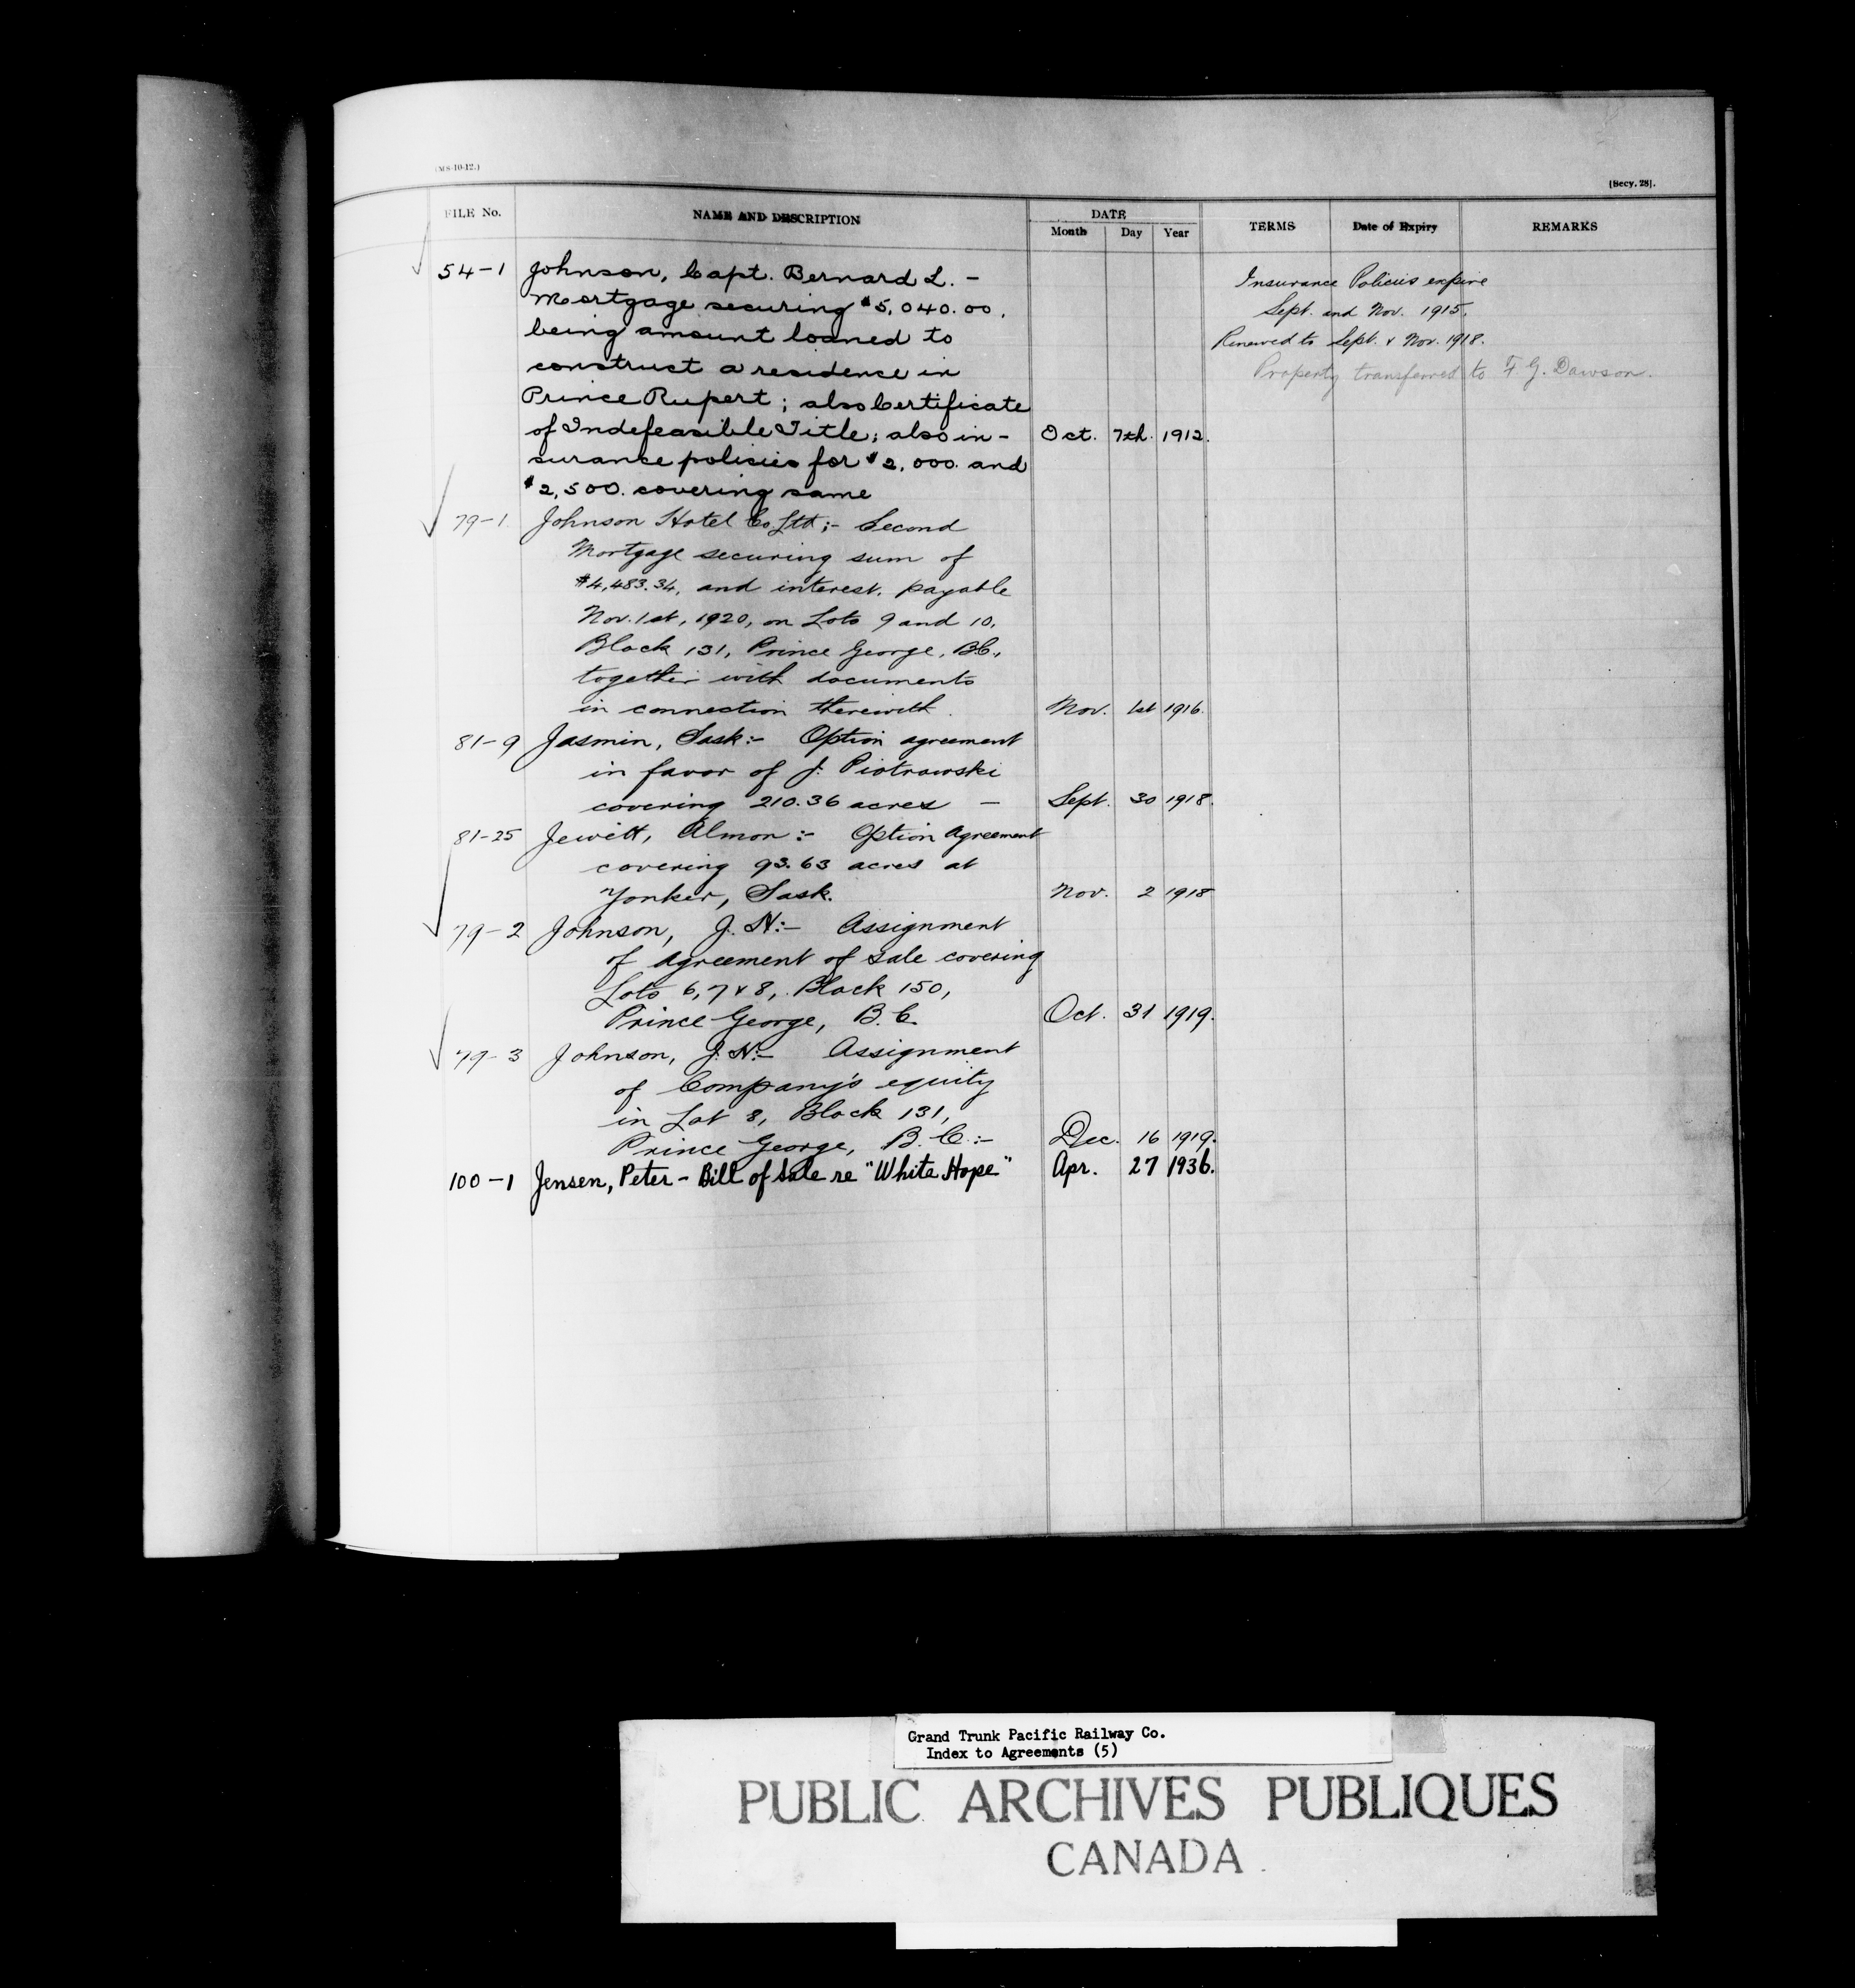 (MS-10-12.)
[Secy. 28].
FILE No. NAME AND DESCRIPTION DATE TERMS Date of Expiry REMARKS
Month Day Year
54-1 Johnson, Capt. Bernard L. - Insurance Policies expire
Mortgage securing $5,040.00, Sept. and Nov. 1915.
being amount loaned to Renewed to Sept. & Nov. 1918.
construct a residence in Property transferred to F G. Dawson.
Prince Rupert; also Certificate
of Indefeasible Title; also in- Oct. 7th. 1912.
surance policies for $2,000. and
$2,500. covering same
79-1 Johnson Hotel Co. Ltd:- Second
Mortgage securing sum of
$4,483.34, and interest, payable
Nov. 1st, 1920, on Lots 9 and 10,
Block 131, Prince George, B.C.,
together with documents
in connection therewith. Nov. 1st 1916.
81-9 Jasmin, Sask:- Option agreement
in favor of J. Piotrowski
covering 210.36 acres - Sept. 30 1918.
81-25 Jewitt, Almon:- Option Agreement
covering 93.63 acres at
Yonker, Sask. Nov. 2 1918
79-2 Johnson, J. N:- Assignment
of Agreement of Sale covering
Lots 6, 7 & 8, Block 150,
Prince George, B.C. Oct. 31 1919.
79-3 Johnson, J. N:- Assignment
of Company's equity
in Lot 8, Block 131,
Prince George, B.C:- Dec. 16 1919.
100-1 Jensen, Peter - Bill of Sale re "White Hope" Apr. 27 1936.
Grand Trunk Pacific Railway Co.
Index to Agreements (5)
PUBLIC ARCHIVES PUBLIQUES
CANADA